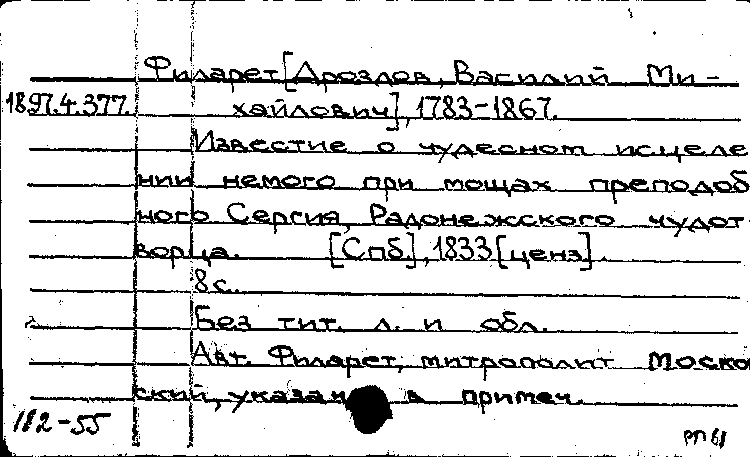 Филарет [Дроздов, Василий Ми-
1897.4.377. хайлович], 1783-1867.
Известие о чудесном исцеле
нии немого при мощах преподоб
ного Сергия, Радонежского чудот
ворца. [Спб.], 1833 [ценз].
8 с.
Без тит. л. и обл.
Авт. Филарет, митрополит Москов
ский, указан в примеч.
182-55
РП 61